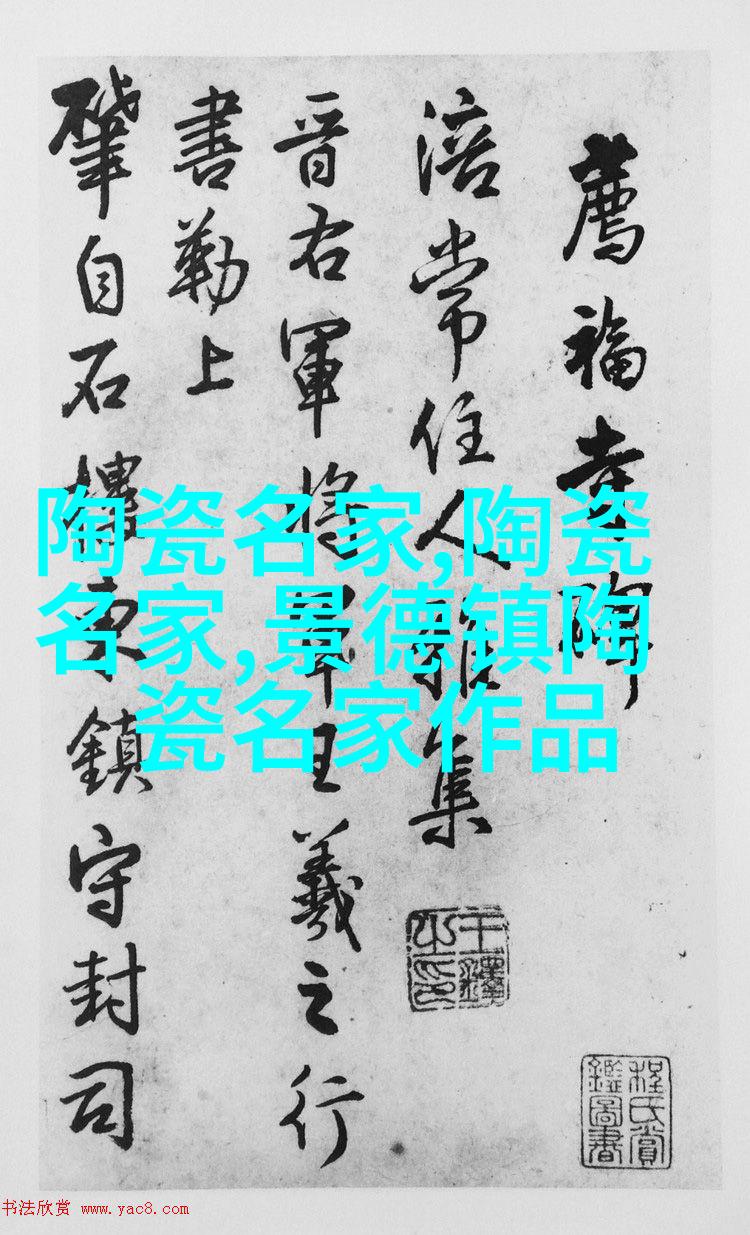 薦福寺陶
涪常住人雅集
晉右軍將軍王羲之行
書勒上
肇自石樓東鎮守封司
王鐸之印
程氏賞鑑圖書
陶瓷名家,陶瓷
名家,景德镇陶
瓷名家作品
书法欣赏 www.yac8.com